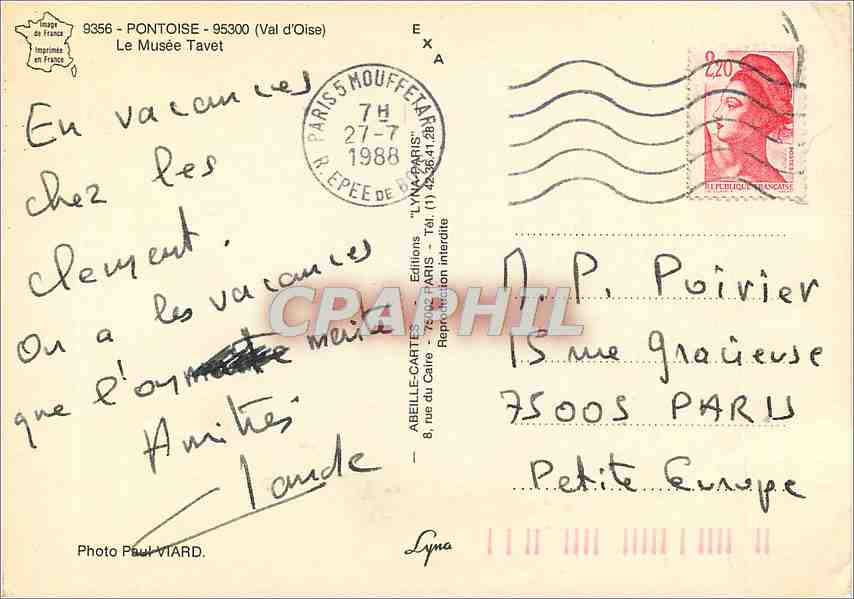 Image
de France
Imprimée
en France
9356 - PONTOISE - 95300 (Val d'Oise)
Le Musée Tavet
E
X
A
En vacances
chez les
clement.
On a les vacances
que l'on mérite
Amitiés
Claude
Photo Paul VIARD.
PARIS 5 MOUFFETARD
7H
27-7
1988
R. EPEE DE BOIS
ABEILLE-CARTES - Editions "LYNA-PARIS"
8, rue du Caire - 75002 PARIS - Tél. (1) 42.36.41.28
Reproduction interdite
Lyna
2,20
REPUBLIQUE FRANCAISE
M. P. Poirier
15 rue gracieuse
75005 PARIS
Petite Europe
CPAPHIL